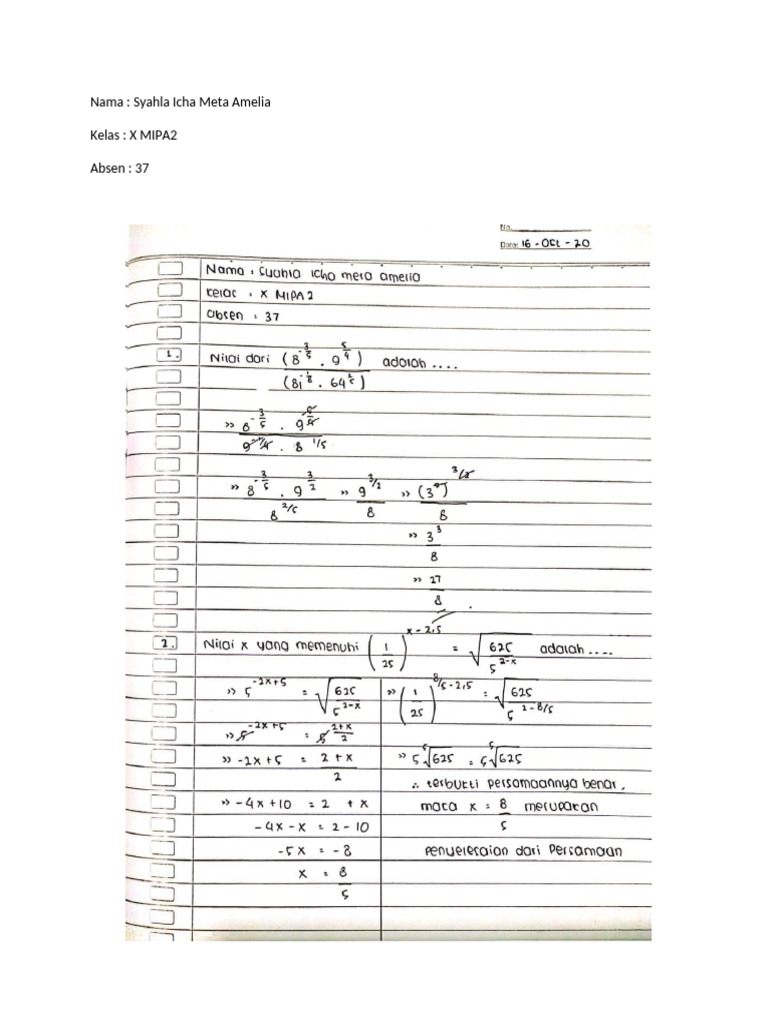 Nama : Syahla Icha Meta Amelia
Kelas : X MIPA2
Absen : 37
No.
Date: 16 - Oct - 20
Nama : Syahla Icha meta amelia
kelas : X MIPA 2
absen : 37
1. Nilai dari (8^-3/5 . 9^5/4) / (81^-1/8 . 64^1/5) adalah ....
>> 8^-3/5 . 9^5/4 / 9^-1/4 . 8^2/5
>> 8^-3/5 . 9^3/2 / 8^2/5 >> 9^3/2 / 8 >> (3^2)^3/2 / 8
>> 3^3 / 8
>> 27 / 8
2. Nilai x yang memenuhi (1/25)^x-2,5 = √(625 / 5^2-x) adalah ....
>> 5^-2x+5 = √(625 / 5^2-x)
>> 5^-2x+5 = 5^(2+x)/2
>> -2x+5 = 2+x / 2
>> -4x+10 = 2 + x
-4x-x = 2-10
-5x = -8
x = 8/5
>> (1/25)^8/5-2,5 = √(625 / 5^2-8/5)
>> 5 ⁵√625 = 5 ⁵√625
∴ terbukti persamaannya benar,
maka x = 8/5 merupakan
penyelesaian dari Persamaan